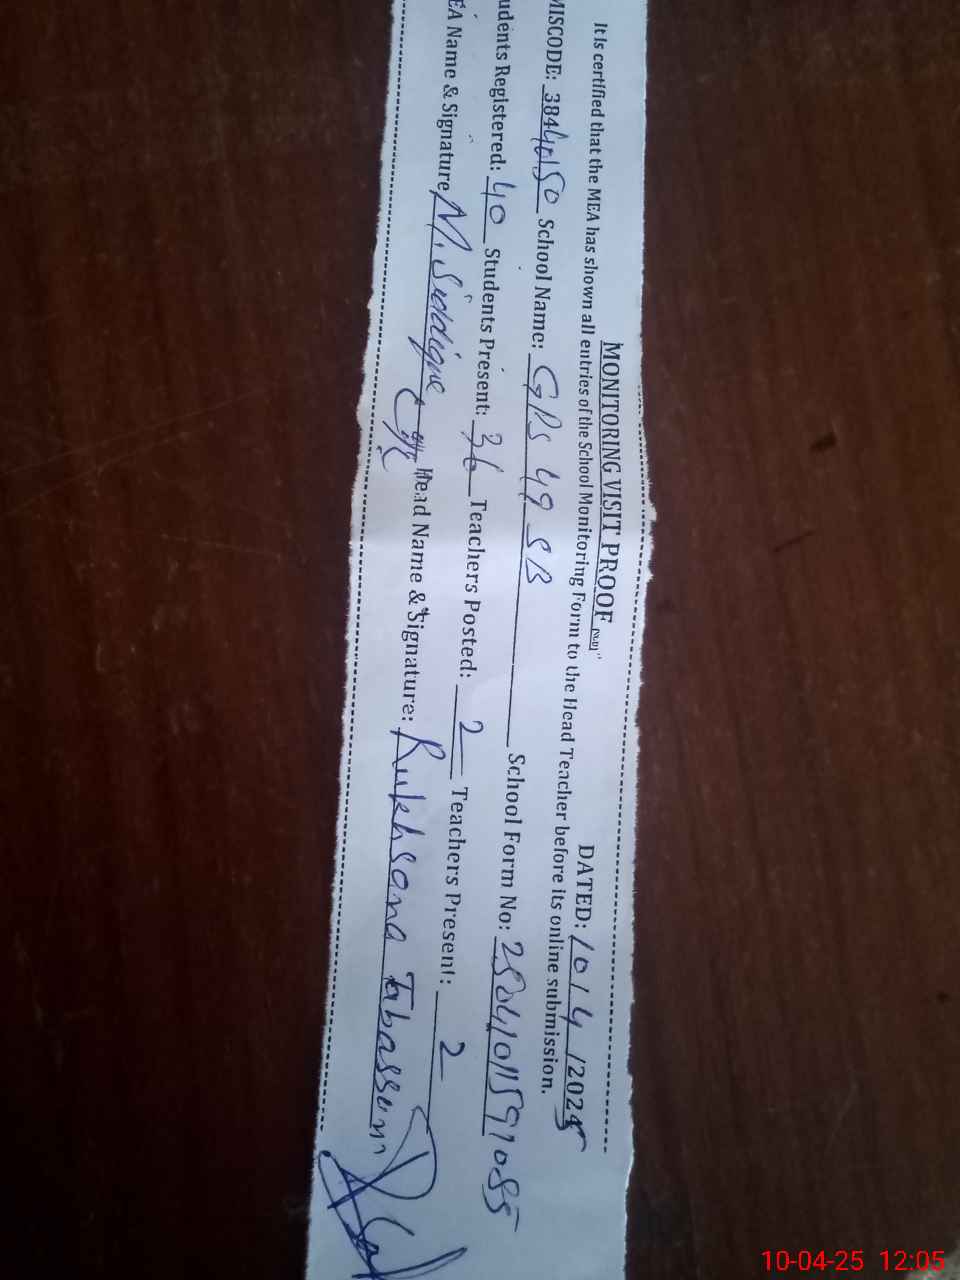 MONITORING VISIT PROOF DATED: 10/4/2025
It is certified that the MEA has shown all entries of the School Monitoring Form to the Head Teacher before its online submission.
MISCODE: 38440150 School Name: GPS 49 SB School Form No:
udents Registered: 40 Students Present: 36 Teachers Posted: 2 Teachers Present: 2
EA Name & Signature M. Siddique Head Name & Signature: Rukhsana Tabassum
10-04-25 12:05